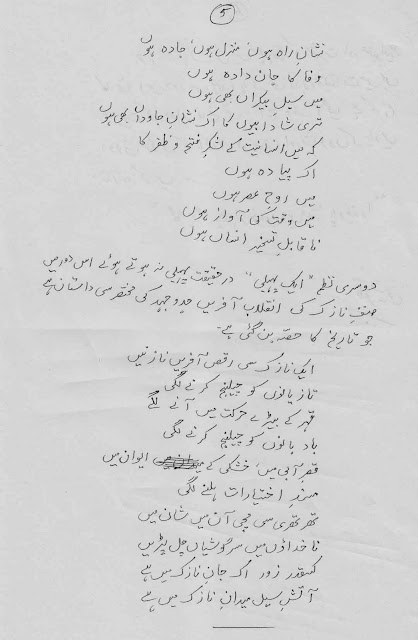 5
نشانِ راہ ہوں، منزل ہوں، جادہ ہوں
وفا کا جان دادہ ہوں
میں سیلِ بیکراں بھی ہوں
تری شادابیوں کا اک نشانِ جاوداں بھی ہوں
کہ میں انسانیت کے لشکرِ فتح و ظفر کا
اک پیادہ ہوں
میں روحِ عصر ہوں
میں وقت کی آواز ہوں
ناقابلِ تسخیر انساں ہوں
دوسری نظم "ایک پہیلی" درحقیقت پہیلی نہ ہوتے ہوئے اس دور میں
صنفِ نازک کی انقلاب آفریں جدوجہد کی مختصر سی داستان ہے
جو تاریخ کا حصّہ بن گئی ہے۔
ایک نازک سی رقص آفریں نازنیں
تازیانوں کو چیلنج کرنے لگی
قہر کے بیڑے حرکت میں آنے لگے
بادبانوں کو چیلنج کرنے لگی
قصرِ آبی میں، خشکی کے ایوان میں
مسندِ اختیارات ہلنے لگی
تھرتھری سی مچی آن میں شان میں
ناخداؤں میں سرگوشیاں چل پڑیں
کسقدر زور اک جانِ نازک میں ہے
آتشِ سیل میدانِ نازک میں ہے